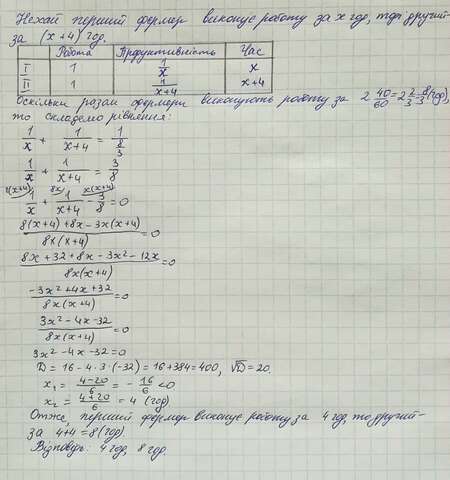 Нехай перший фермер виконує роботу за x год, тоді другий
за (x+4) год.
Робота Продуктивність Час
I 1 1/x x
II 1 1/(x+4) x+4
Оскільки разом фермери виконують роботу за 2 40/60 = 2 2/3 = 8/3 (год),
то складемо рівняння:
1/x + 1/(x+4) = 1/(8/3)
1/x + 1/(x+4) = 3/8
8(x+4) 8x x(x+4)
1/x + 1/(x+4) - 3/8 = 0
(8(x+4)+8x-3x(x+4))/(8x(x+4)) = 0
(8x+32+8x-3x²-12x)/(8x(x+4)) = 0
(-3x²+4x+32)/(8x(x+4)) = 0
(3x²-4x-32)/(8x(x+4)) = 0
3x²-4x-32=0
D = 16-4·3·(-32) = 16+384=400, √D=20.
x₁ = (4-20)/6 = -16/6 <0
x₂ = (4+20)/6 = 4 (год)
Отже, перший фермер виконує роботу за 4 год, то другий-
за 4+4=8 (год)
Відповідь: 4 год, 8 год.